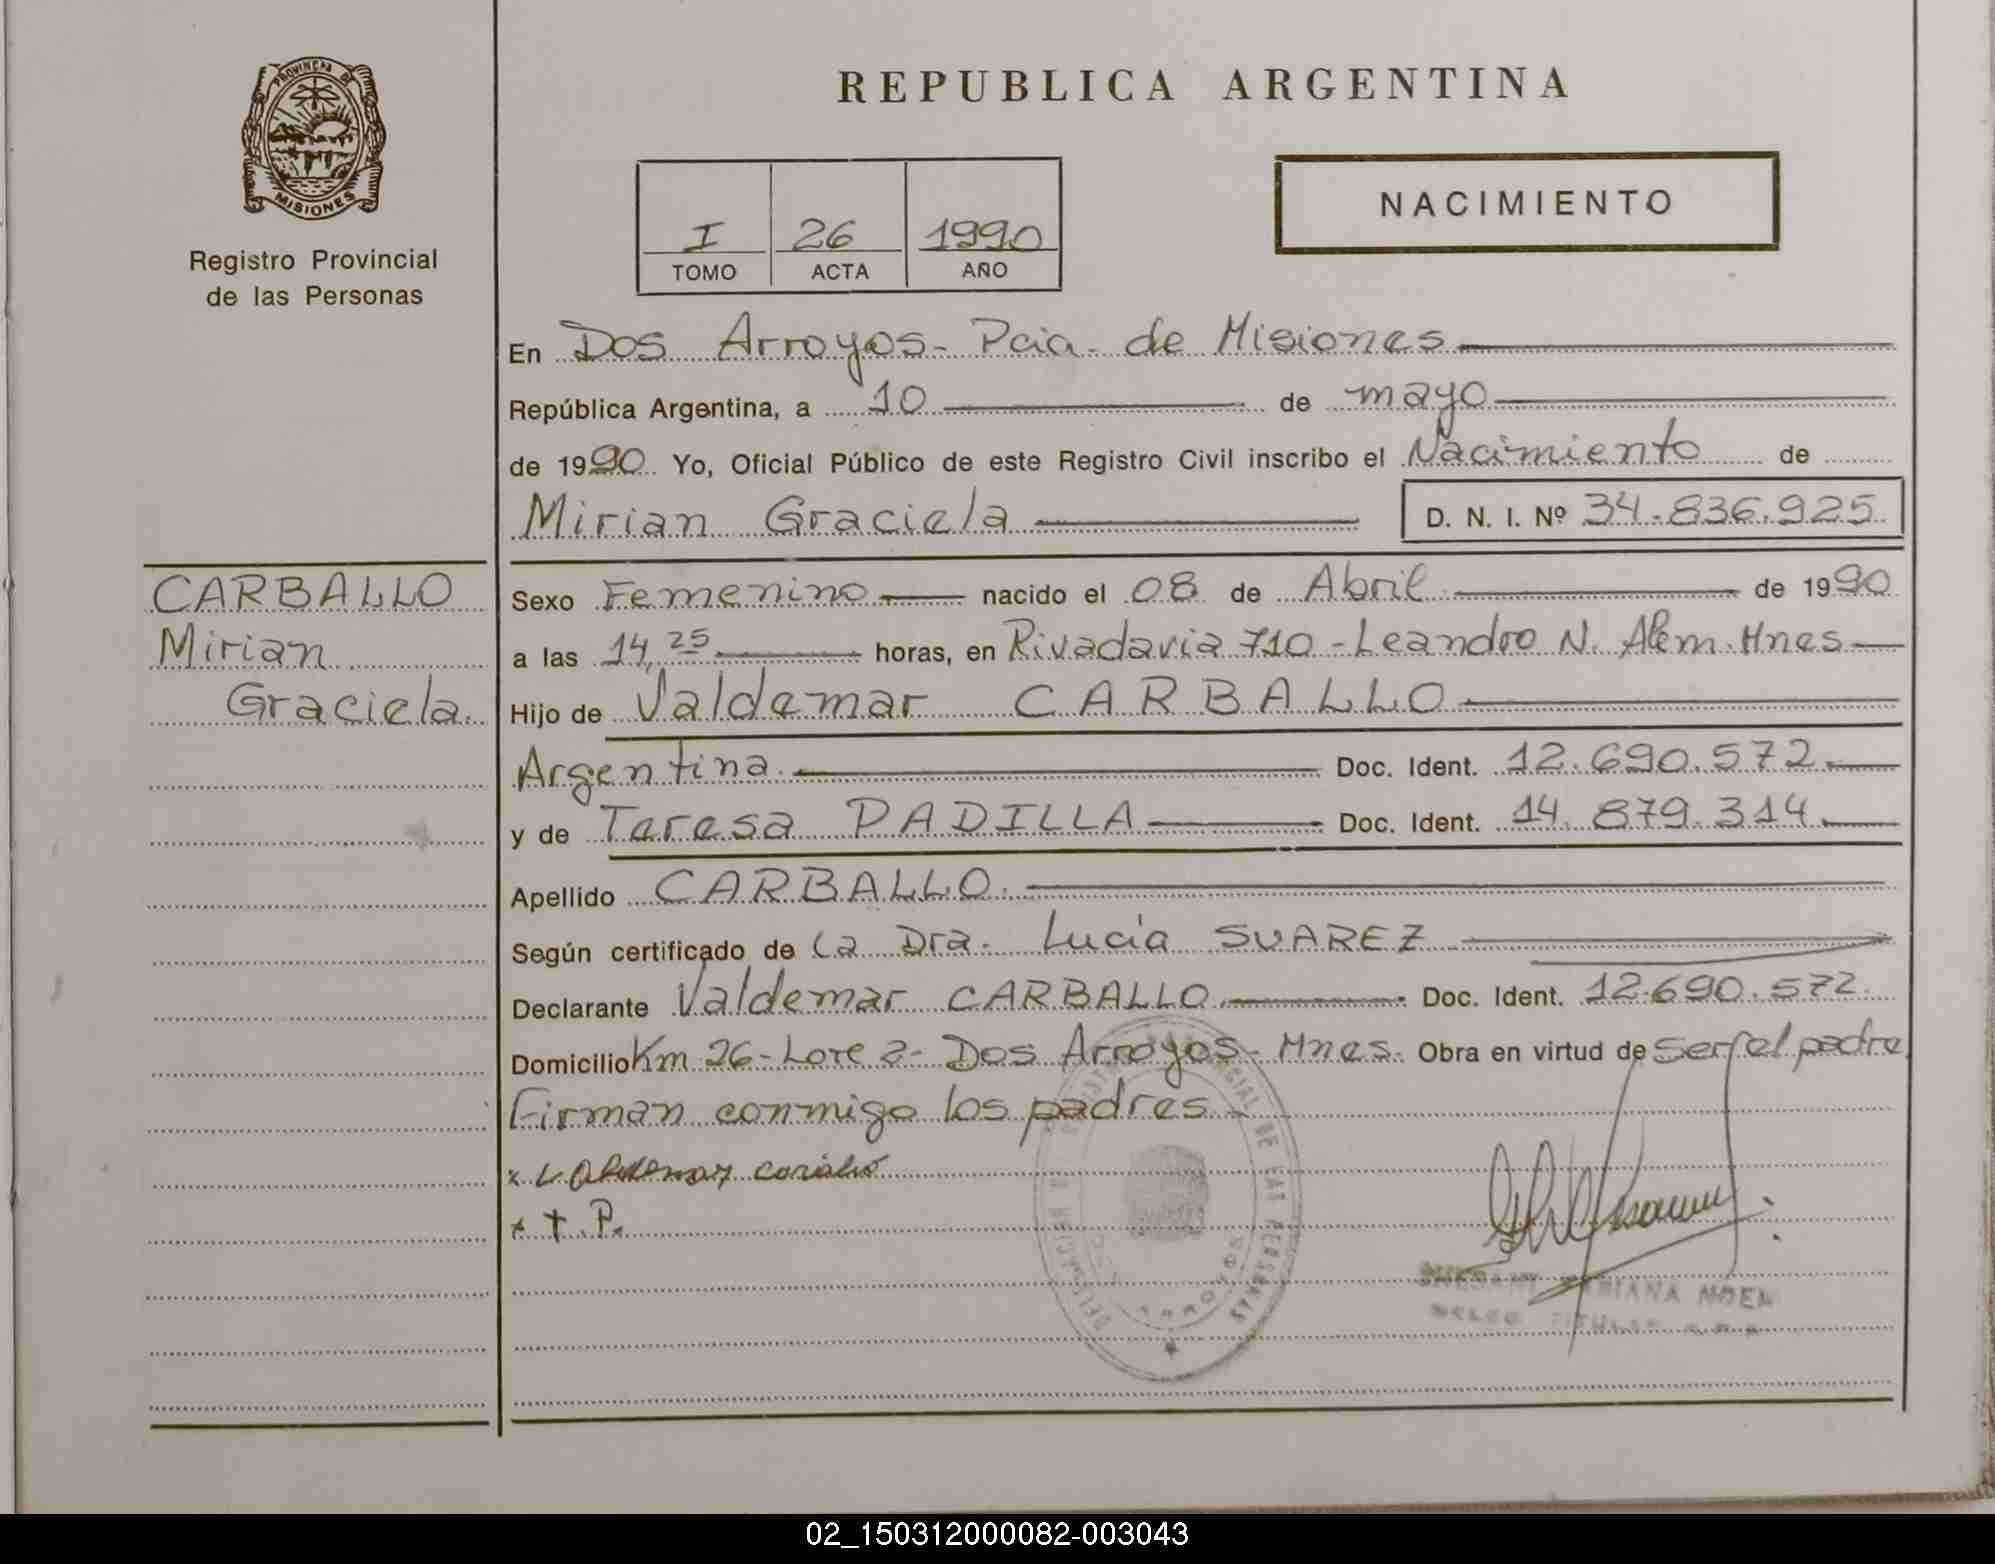 PROVINCIA DE
MISIONES
Registro Provincial
de las Personas
REPUBLICA ARGENTINA
I 26 1990
TOMO ACTA AÑO
NACIMIENTO
En Dos Arroyos - Pcia. de Misiones
República Argentina, a 10 de mayo
de 1990 Yo, Oficial Público de este Registro Civil inscribo el Nacimiento de
Mirian Graciela D. N. I. Nº 34.836.925
CARBALLO
Mirian
Graciela
Sexo Femenino nacido el 08 de Abril de 1990
a las 14,25 horas, en Rivadavia 710 - Leandro N. Alem. Mnes
Hijo de Valdemar CARBALLO
Argentina Doc. Ident. 12.690.572
y de Teresa PADILLA Doc. Ident. 14.879.314
Apellido CARBALLO
Según certificado de La Dra. Lucía SUAREZ
Declarante Valdemar CARBALLO Doc. Ident. 12.690.572
Domicilio Km 26 - Lote 2 - Dos Arroyos - Mnes. Obra en virtud de ser el padre
Firman conmigo los padres
x Valdemar
x T. P.
DE LAS PERSONAS
02_150312000082-003043